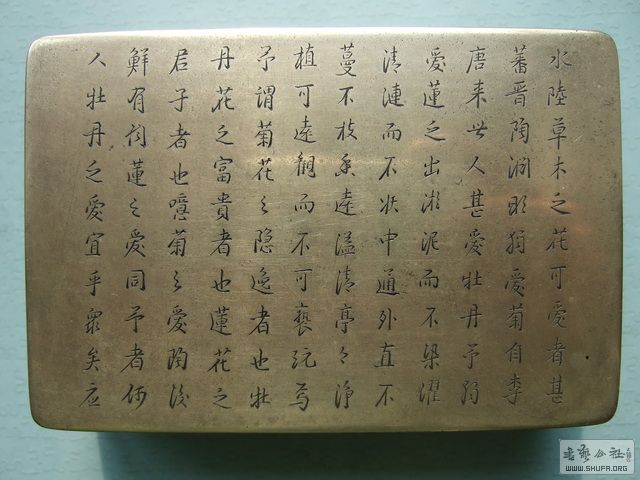 水陸草木之花可愛者甚
蕃晋陶淵明獨愛菊自李
唐来世人甚愛牡丹予獨
愛蓮之出淤泥而不染濯
清漣而不妖中通外直不
蔓不枝香遠溢清亭々淨
植可遠觀而不可褻玩焉
予謂菊花之隐逸者也牡
丹花之富貴者也蓮花之
君子者也噫菊之愛陶後
鮮有聞蓮之愛同予者何
人牡丹之愛宜乎衆矣
WWW.SHUFA.ORG